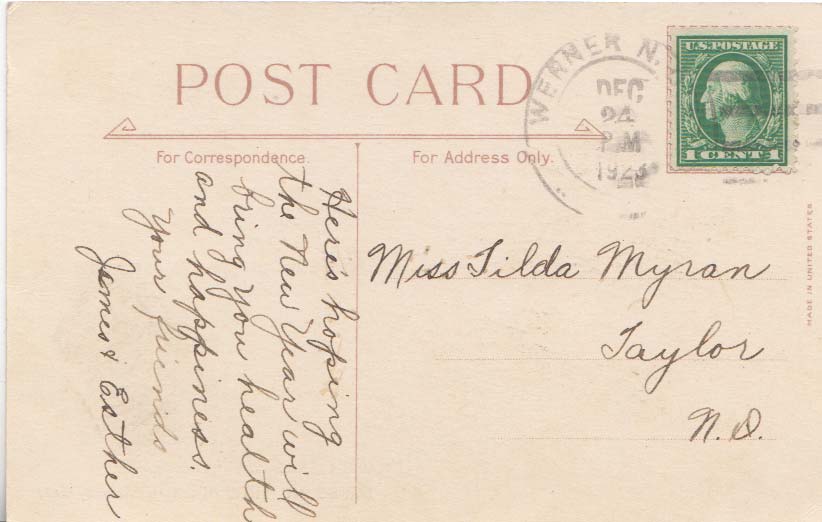 POST CARD
For Correspondence.
For Address Only.
WERNER N.
DEC
24
P M
1923
U.S. POSTAGE
1 CENT 1
Here's hoping
the New Year will
bring you health
and happiness.
Your friends
James & Esther
Miss Tilda Myran
Taylor
N. D.
MADE IN UNITED STATES